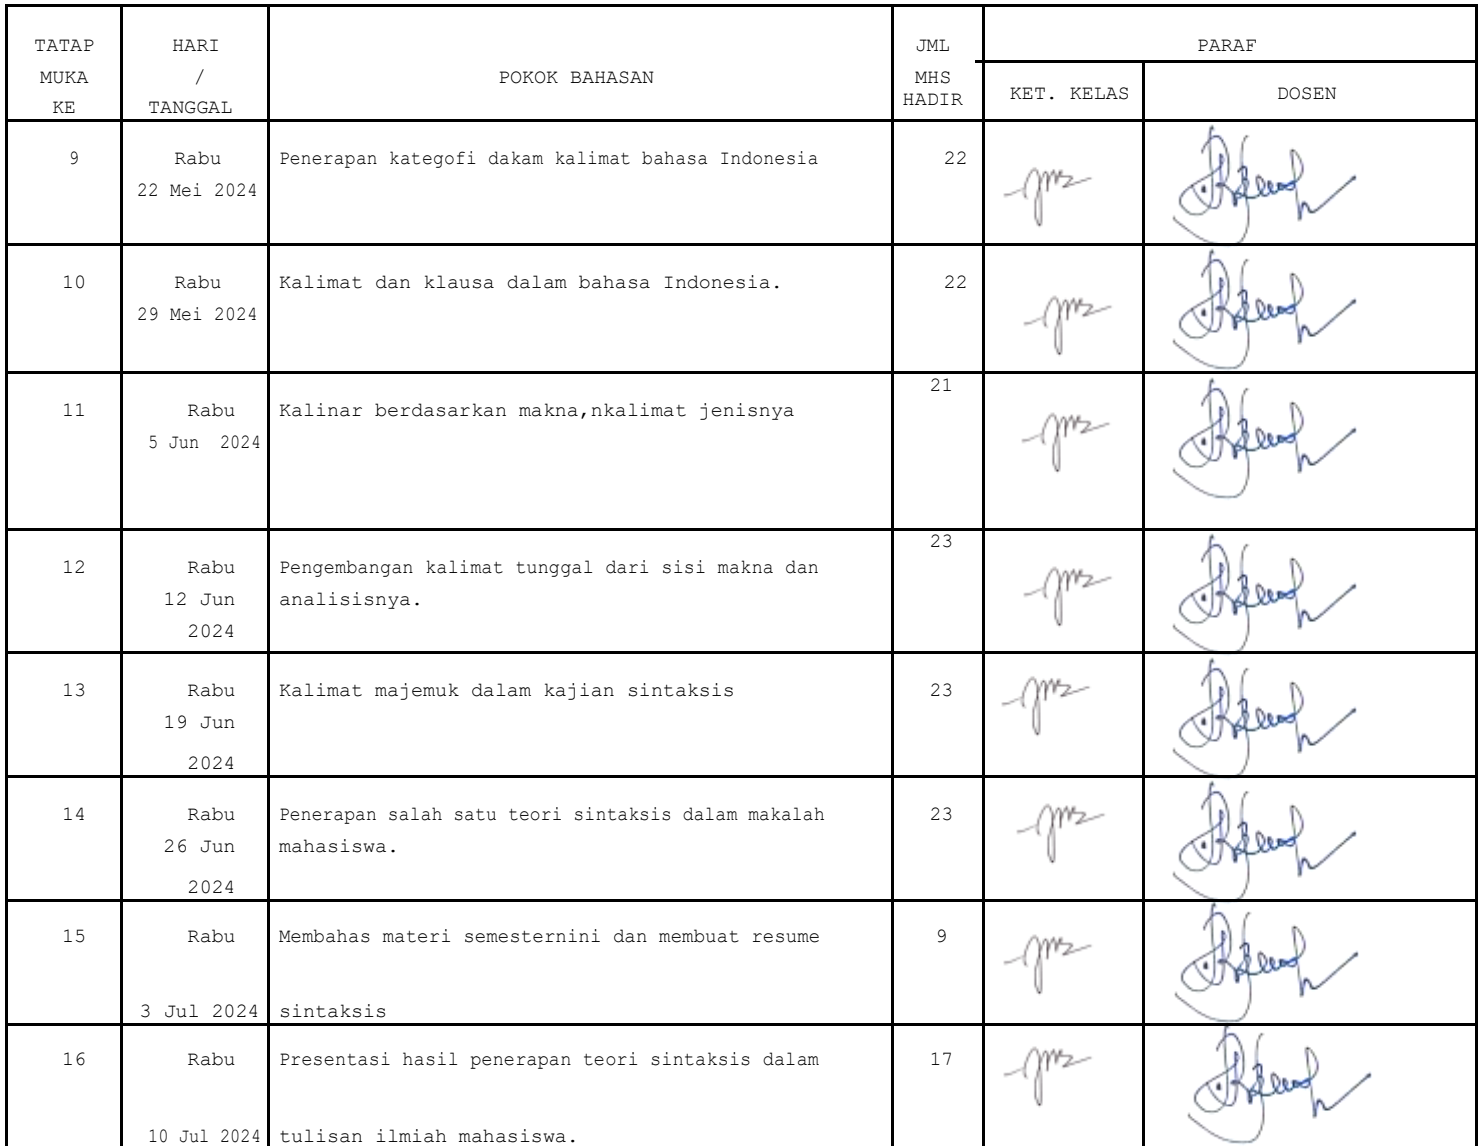 TATAP MUKA KE
HARI / TANGGAL
POKOK BAHASAN
JML MHS HADIR
PARAF
KET. KELAS
DOSEN
9
Rabu
22 Mei 2024
Penerapan kategofi dakam kalimat bahasa Indonesia
22
10
Rabu
29 Mei 2024
Kalimat dan klausa dalam bahasa Indonesia.
22
11
Rabu
5 Jun 2024
Kalinar berdasarkan makna,nkalimat jenisnya
21
12
Rabu
12 Jun
2024
Pengembangan kalimat tunggal dari sisi makna dan
analisisnya.
23
13
Rabu
19 Jun
2024
Kalimat majemuk dalam kajian sintaksis
23
14
Rabu
26 Jun
2024
Penerapan salah satu teori sintaksis dalam makalah
mahasiswa.
23
15
Rabu
3 Jul 2024
Membahas materi semesternini dan membuat resume
sintaksis
9
16
Rabu
10 Jul 2024
Presentasi hasil penerapan teori sintaksis dalam
tulisan ilmiah mahasiswa.
17